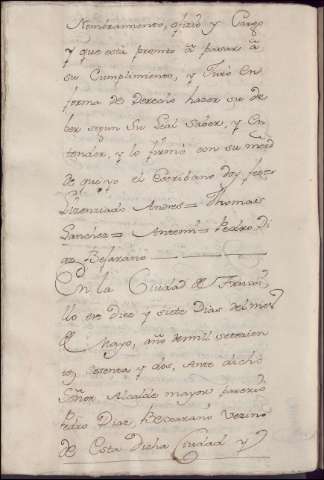 Nombramiento, ofizio y Cargo
y que está prompto â pasar â
su Cumplimiento, y Juró en
forma de derecho hazer su de
ber segun su Leal saber, y En
tender, y lo firmó con su mrd
de que yo el Escribano doy fee=
Lizenziado Andres= Thomas
Sanchez= Antemi= Pedro Di
az Bejarano
En la Ciudad de Truxi
llo en Diez y siete Dias del mes
de Mayo, año de mill setezien
tos, setenta y dos, Ante dicho
Señor Alcalde mayor parezió
Pedro Diaz, Bejarano Vezino
de Esta dicha Ciudad y